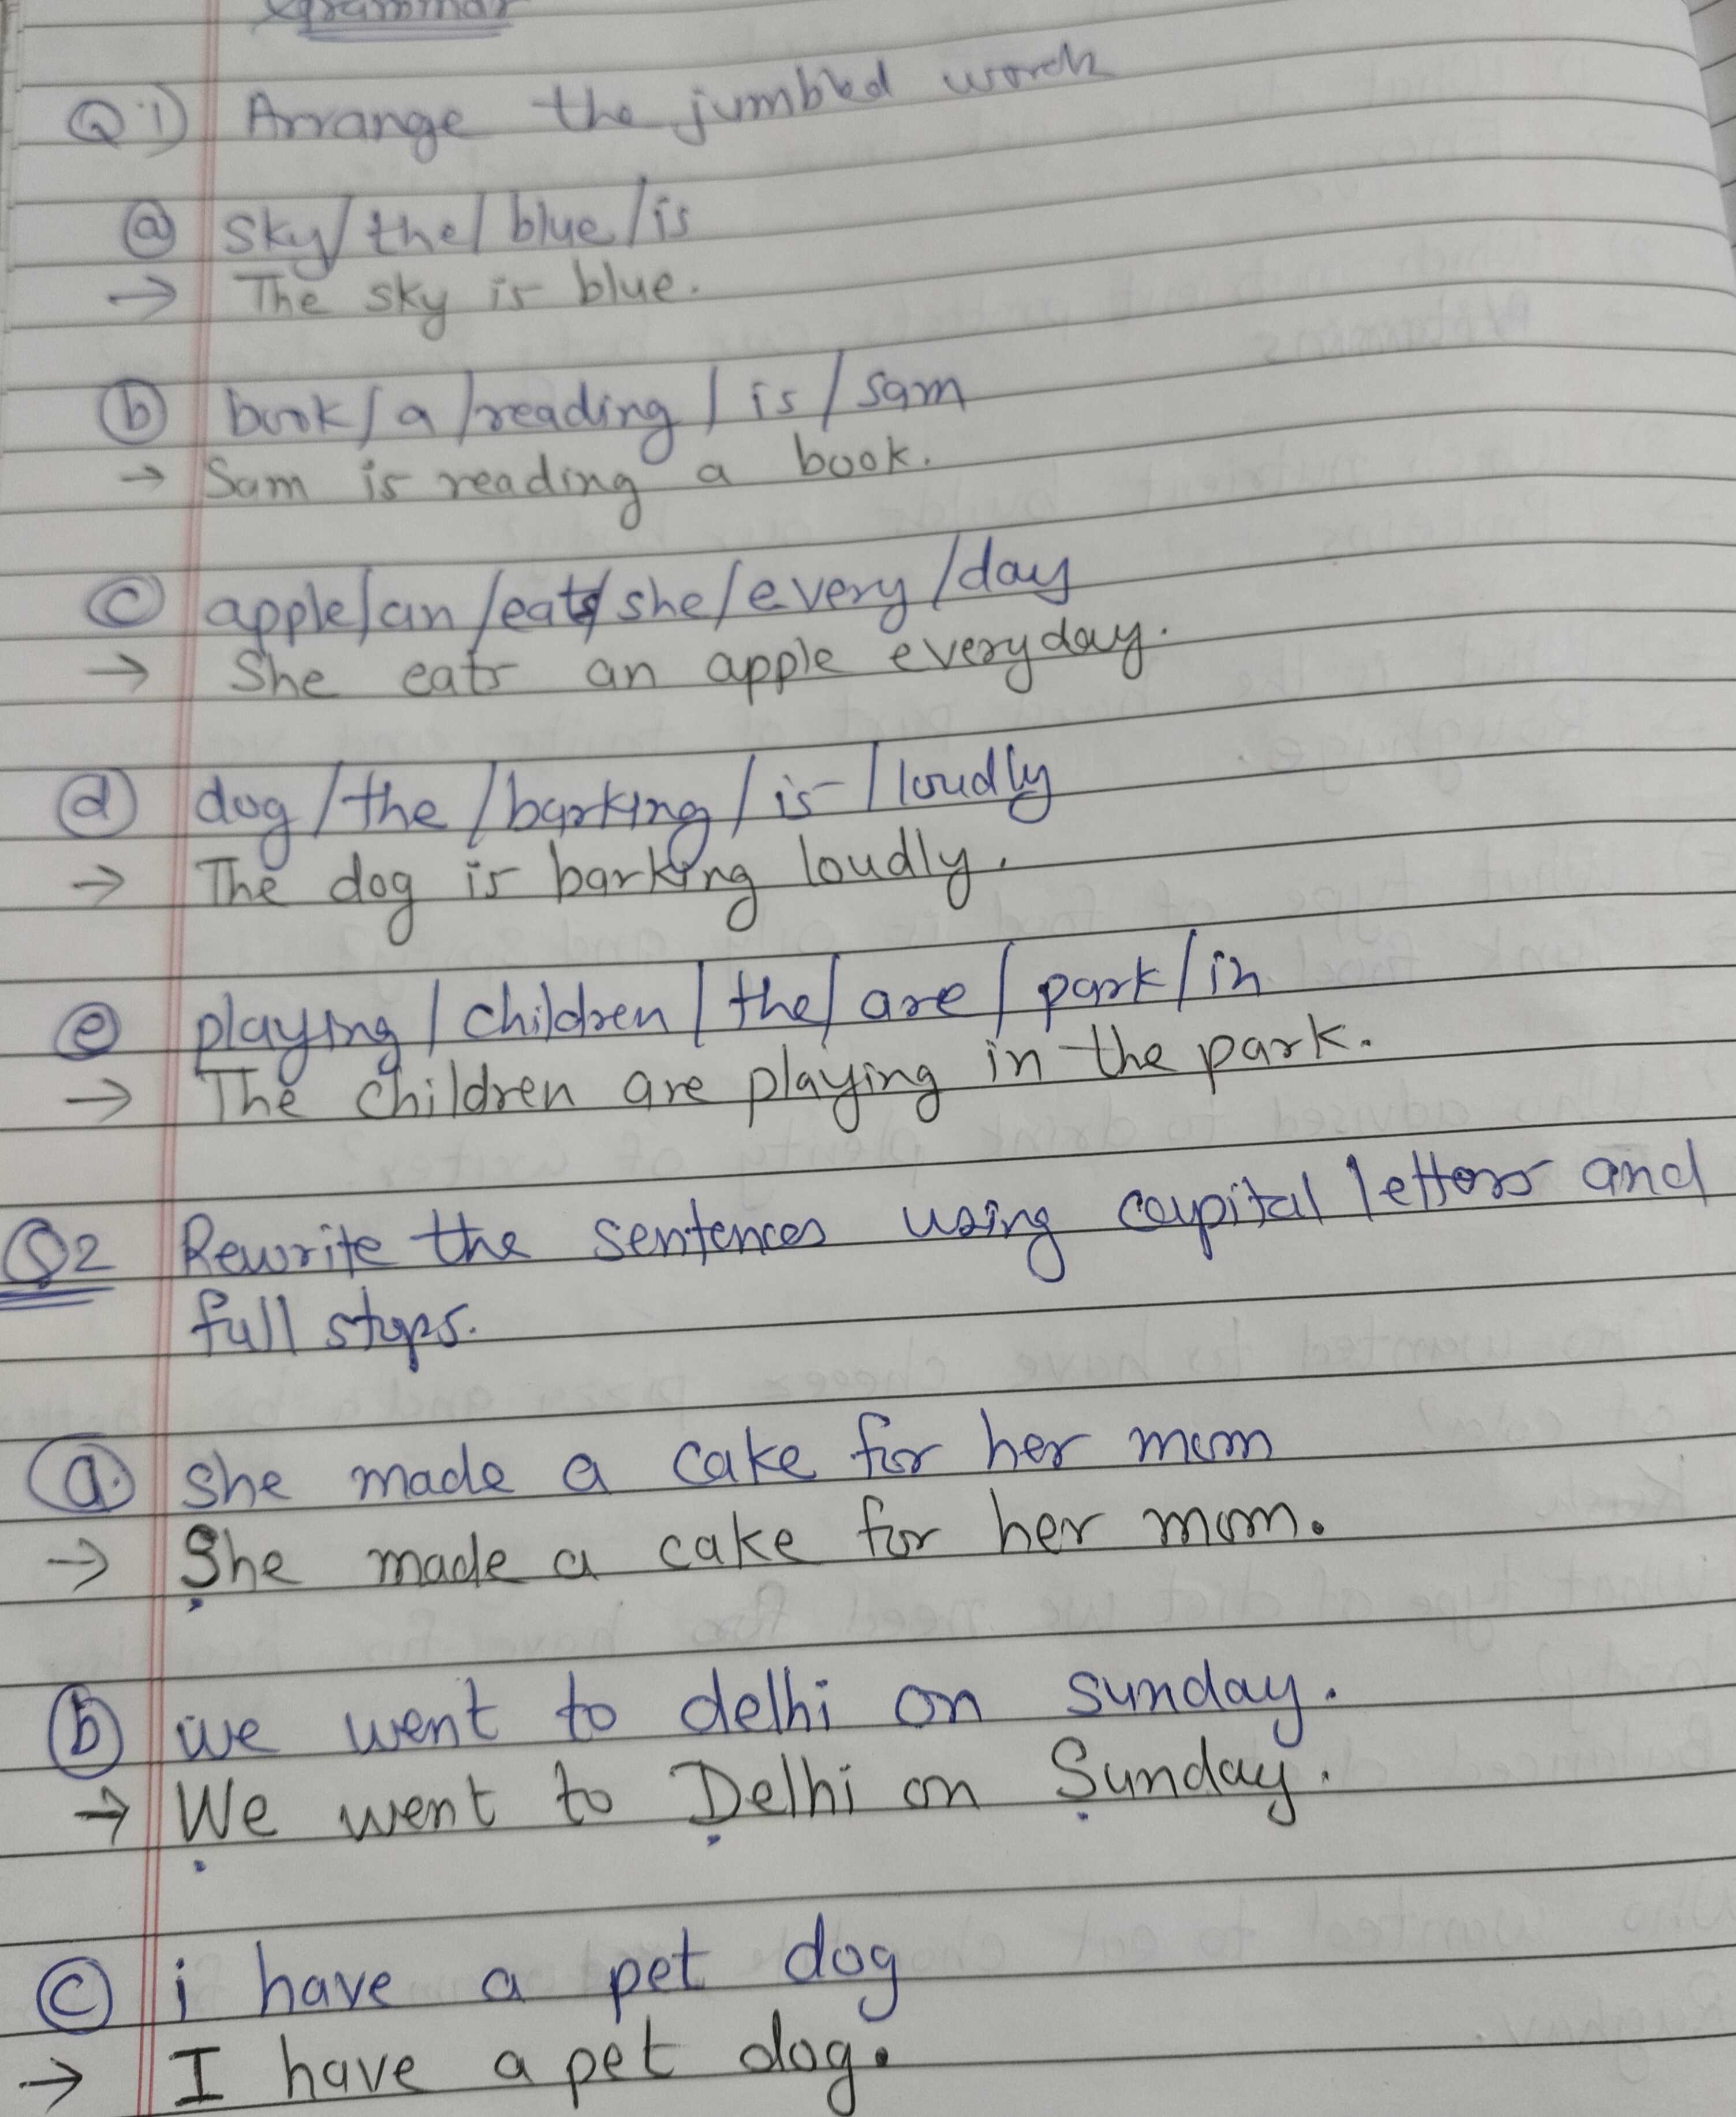 Grammar
Q1) Arrange the jumbled words
(a) sky/the/blue/is
→ The sky is blue.
(b) book/a/reading/is/sam
→ Sam is reading a book.
(c) apple/an/eats/she/every/day
→ She eats an apple everyday.
(d) dog/the/barking/is/loudly
→ The dog is barking loudly.
(e) playing/children/the/are/park/in
→ The children are playing in the park.
Q2 Rewrite the sentences using capital letters and
full stops.
(a) she made a cake for her mom
→ She made a cake for her mom.
(b) we went to delhi on sunday.
→ We went to Delhi on Sunday.
(c) i have a pet dog
→ I have a pet dog.